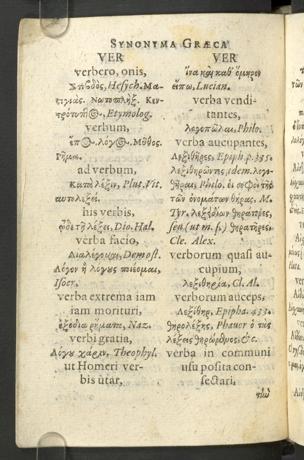 SYNONYMA GRÆCA
VER
verbero, onis,
Στιγδὸς, Hesych. Μα-
τιγίας. Νωτοπλὴξ. Κεν-
Etymolog.
verbum,
ἔπος. λόγος. Μῦθος.
Ῥῆμα.
ad verbum,
Κατὰ λέξιν, Plut. Vit.
αὐτολεξεὶ.
his verbis,
ὧδέ τῃ λέξει, Dio. Hal.
verba facio,
Διαλέγομαι, Demost.
Λόγον ἢ λόγους ποιέομαι,
Isocr.
verba extrema iam
iam morituri,
ἐξόδια ῥήματα, Naz.
verbi gratia,
Λόγου χάριν, Theophyl.
ut Homeri ver-
bis utar,
VER
ἵνα καθ' ὅμηρον
εἴπω, Lucian.
verba vendi-
tantes,
λογοπῶλαι, Philo.
verba aucupantes,
Λεξιθῆρες, Epiph. p. 385.
idem.
Philo.
τῶν ὀνομάτων θήρας. M.
Tyr.
seu, (ut m. s.)
Cle. Alex.
verborum quasi au-
cupium,
λεξιθηρία, Cl. Al.
verborum auceps,
Λεξιθὴρ, Epipha. 433.
θηρολέξης, Phavor ὁ τὰς
λέξεις θηρώμενος. &c.
verba in communi
usu posita con-
sectari,
τῶν